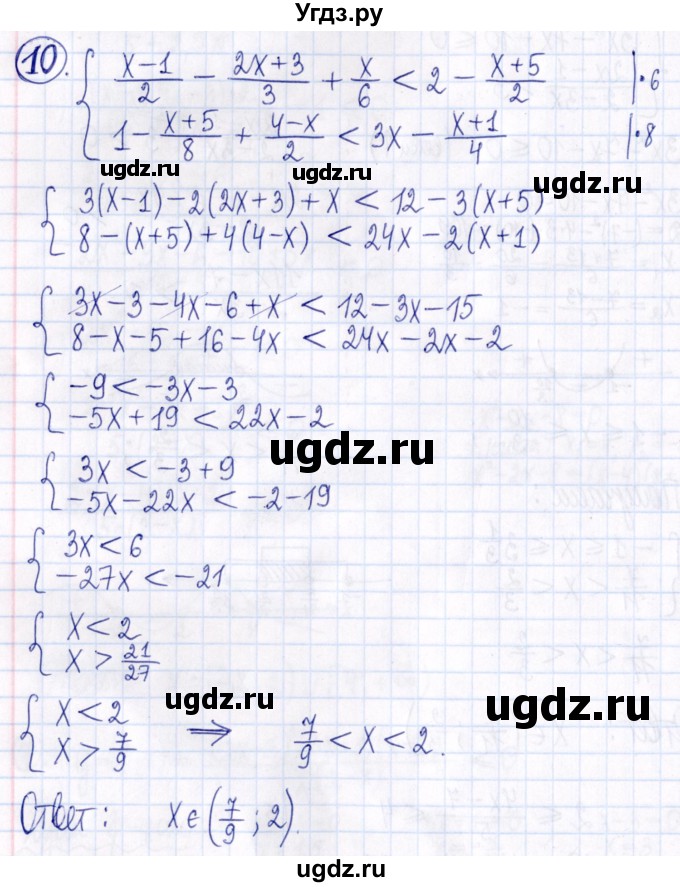 Угдз.ру
10. { (x-1)/2 - (2x+3)/3 + x/6 < 2 - (x+5)/2 |·6
1 - (x+5)/8 + (4-x)/2 < 3x - (x+1)/4 |·8
ugdz.ru ugdz.ru
{ 3(x-1)-2(2x+3)+x < 12-3(x+5)
8-(x+5)+4(4-x) < 24x-2(x+1)
{ 3x-3-4x-6+x < 12-3x-15
8-x-5+16-4x < 24x-2x-2
ugdz.ru
{ -9 < -3x-3
-5x+19 < 22x-2
ugdz.ru
{ 3x < -3+9
-5x-22x < -2-19
{ 3x < 6
-27x < -21
{ x < 2
x > 21/27
ugdz.ru
ugdz.ru
{ x < 2
x > 7/9 ⇒ 7/9 < x < 2.
Ответ: x∈(7/9; 2).
ugdz.ru
ugdz.ru